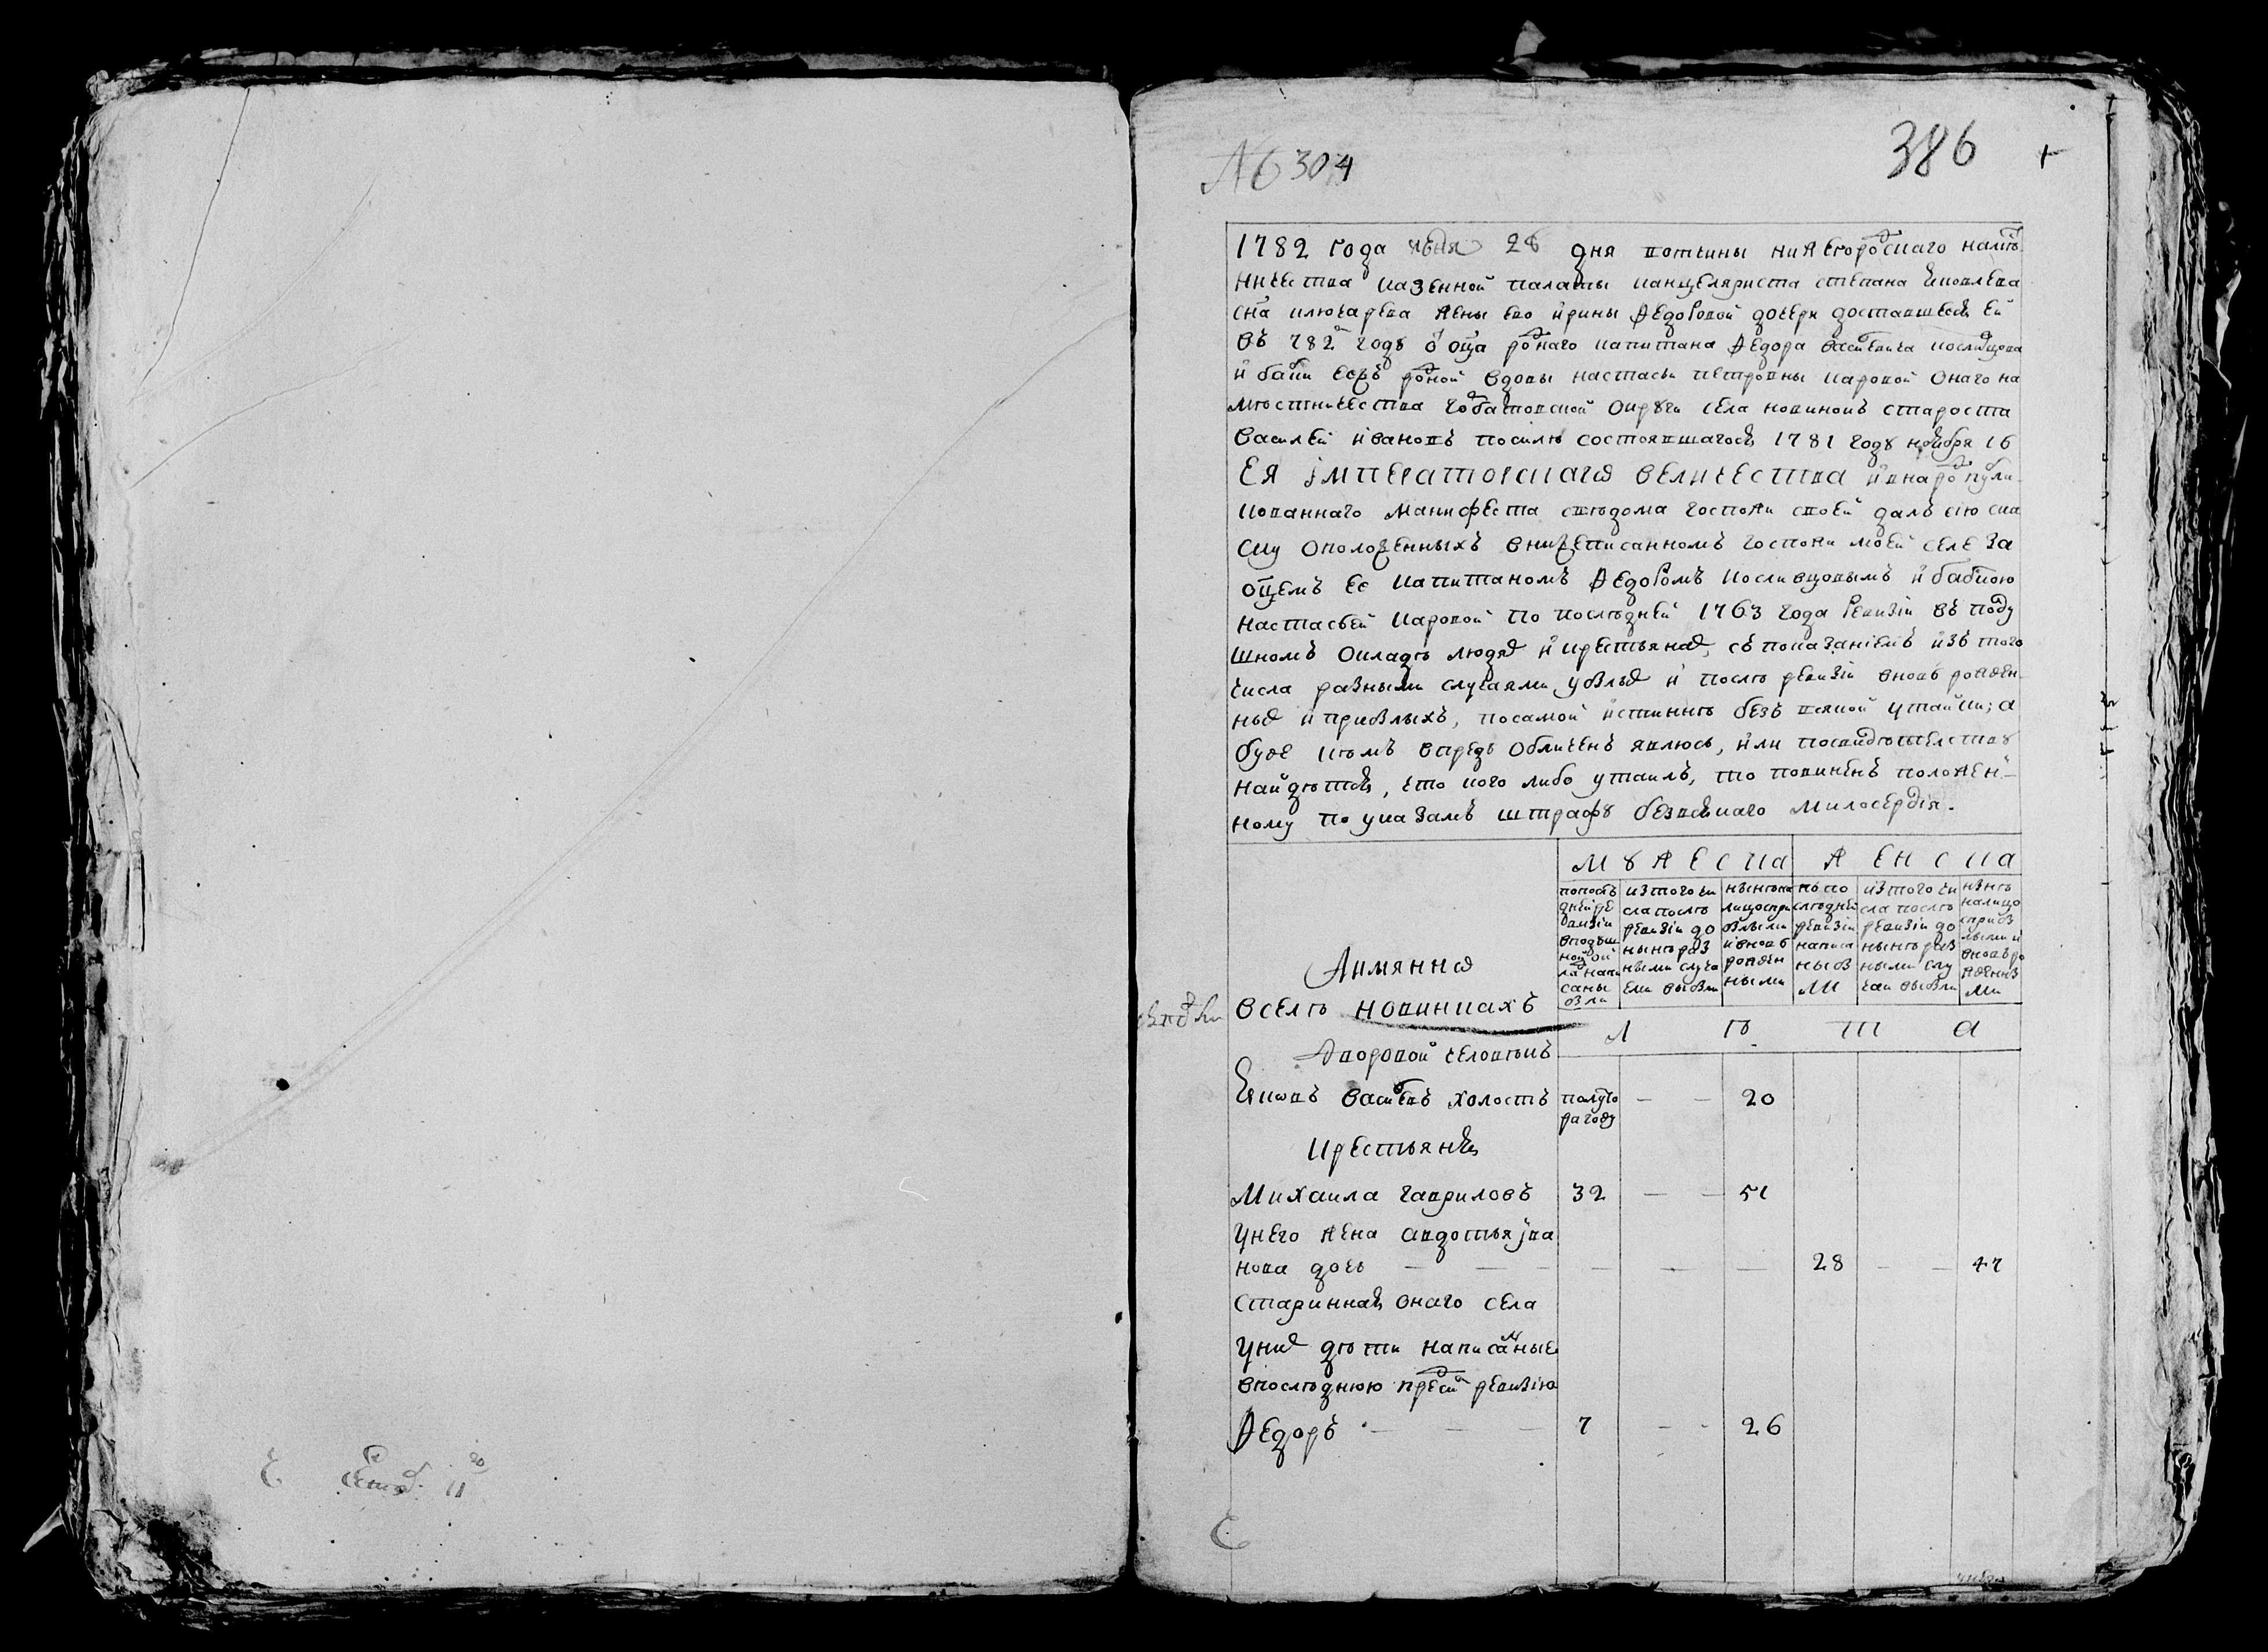 № 304
386
1782 года июня 28 дня вотчины нижегородскаго намѣс
ничества казенной палаты канцеляриста степана яковлева
сна ключарева жены ево ирины федоровой дочери доставшеися ей
въ 782м годѣ от отца роднаго капитана федора василевича
и бапки ееръ родной вдовы настасьи петровны каровой онаго на
мѣстничества горбатовской округи села новинокъ староста
василей ивановъ посилѣ состоявшагося 1781 году ноября 16
ЕЯ імператорскаго величества и внародъ публи
кованнаго манифеста сведома госпожи своей далъ сию ска
ску ополозенныхъ внизеписанномъ госпожи моей селе за
отцемъ ее капитаномъ федоромъ и бапкою
настасьей каровой по послѣдней 1763 года ревизіи въ поду
шномъ окладѣ людях и крестьянах, съ показаніемъ изъ того
числа разными случаями убылых и послѣ ревизіи вновь рожден
ных и прибылыхъ, посамой истиннѣ безъ всякой утайки; а
буде кѣмъ впредь обличенъ явлюсь, или посвидѣтелству
найдѣтся, что кого либо утаилъ, то повиненъ положен-
ному по указамъ штрафу безвсякаго милосердія.
мужеска женска
попослѣ
дней ре
визіи
вподуш
ной ок
лад напи
саны
были
изтого чи
сла послѣ
ревизіи до
нынѣ раз
ными случа
еми выбыли
нынѣ на
лицо спри
былыми
и вновь
рожден
ными
по по
слѣдней
ревизіи
написа
ны бы
ли
изтого чи
сла послѣ
ревизіи до
нынѣ раз
ными слу
чаи выбыли
нынѣ
налицо
сприбы
лыми и
вновь ро
жденны
ми
Аимянно
вселѣ новинкахъ
л ѣ т а
дворовой человѣкъ
Яковъ васильевъ холостъ полуто
ра году — — 20
крестьяня
Михаила гавриловъ 32 — — 51
унего жена авдотья ива
нова дочь — — — — — — 28 — — 47
стариная онаго села
уних дѣти написаные
впослѣднюю пред сим ревизию
федоръ — — — 7 — - 26